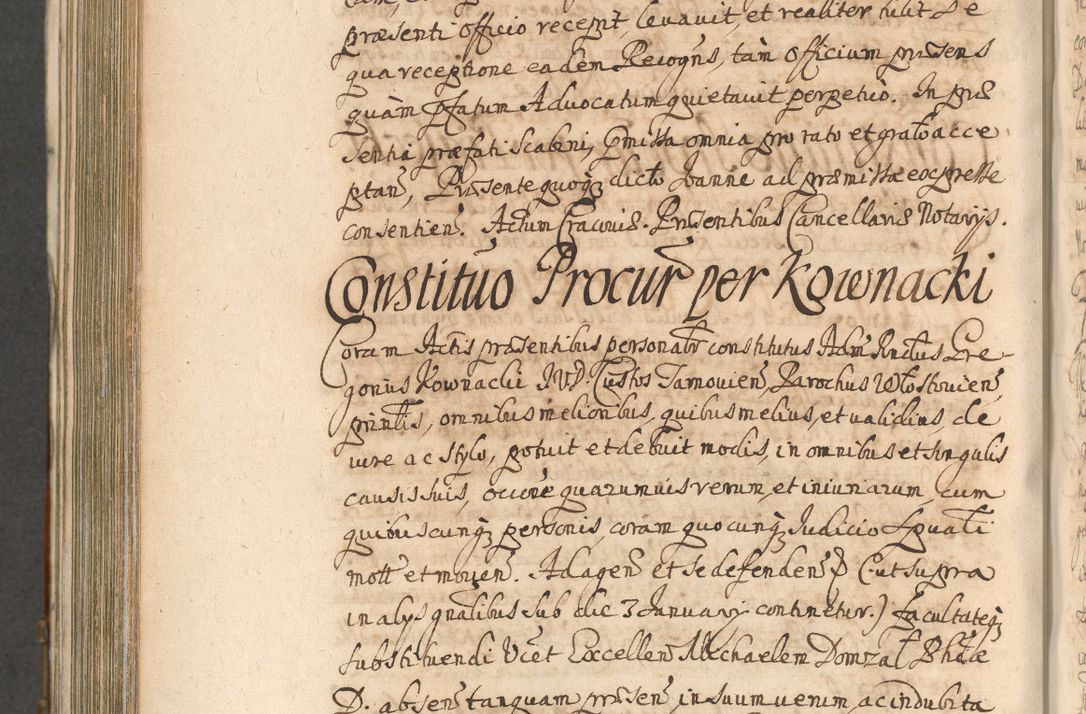 præsenti officio recepit, levavit, et realiter tulit De
qua receptione eadem Recogns, tam officium præsens
quàm pfatum Advocatum quietavit perpetuò. In præ
sentia præfati scabini, pmissa omnia pro rato et grato acce
ptan, Præsente quoqz dicto Joanne ad præmissa expresse
consentien. Actum Cracoviæ. Præsentibus Cancellariæ Notarijs.
Constitutio Procur per Kownacki
Coram Actis præsentibus personalr constitutus Adm Rndus Gre-
gorius Kownacki JVD. Custos Tarnovien, Parochus Włostovien,
prinlis, omnibus melioribus, quibus melius, et validius, de
iure ac stylo, potuit et debuit modis, in omnibus et singulis
causis suis, occone quarumvis rerum, et iniuriarum, cum
quibuscunqz personis, coram quocunqz Judicio Spuali
mott et moven. Ad agen et se defenden p (ut supra
in alijs gnalibus sub die 3 Januarij continetur.) facultateqz
substituendi Vcet Excellen Michaelem Domzał Phiae
D. absen tanquam præsen in suum verum, ac indubita